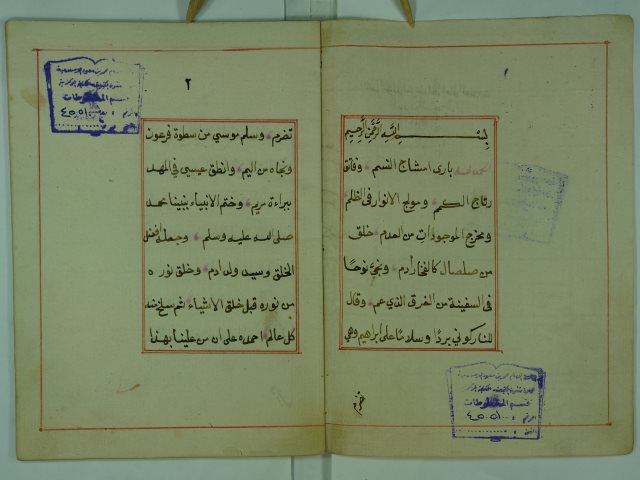 ١
بسم الله الرحمن الرحيم
الحمد لله بارى امشاج النسم وفاتق
رتاج الكمم ومولج الانوار فى الظلم
ومخرج الموجودات من العدم خلق
من صلصال كالفخار آدم ونجى نوحا
فى السفينة من الغرق الذي عم وقال
للنار كوني بردًا وسلامًا على ابراهيم وهي
٢
تضرم وسلم موسي من سطوة فرعون
ونجاه من اليم وانطق عيسي في المهد
ببراءة مريم وختم الانبياء بنبينا محمد
صلى الله عليه وسلم وجعله افضل
الخلق وسيد ولد آدم وخلق نوره
من نوره قبل خلق الاشياء ثم سلخ منه
كل عالم احمده على ان من علينا بهذا
قسم المخطوطات
قسم المخطوطات